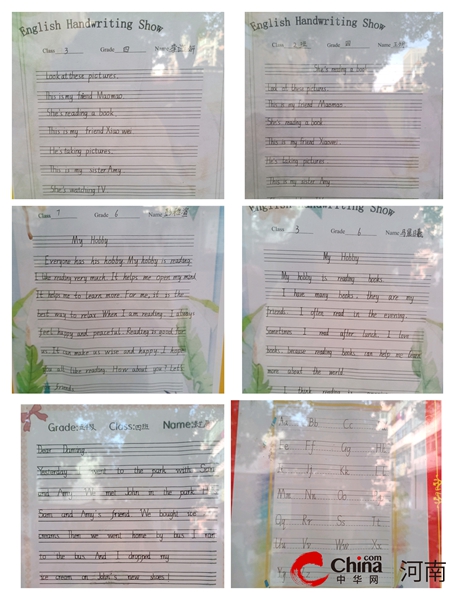 English Handwriting Show
Class 3 Grade 四 Name
Look at these pictures.
This is my friend Maomao.
She's reading a book.
This is my friend Xiao wei
He's taking pictures.
This is my sister Amy.
She's watching TV.
English Handwriting Show
Class Grade 四 Name
She's reading a book
Look at these pictures
This is my friend Maomao.
She's reading a book
This is my friend Xiaowei
He's taking pictures
This is my sister Amy
English Handwriting Show
Class 7 Grade 6 Name
My Hobby
Everyone has his hobby. My hobby is reading.
I like reading very much. It helps me open my mind
It helps me to learn more. For me, it is the
best way to relax. When I am reading, I always
feel happy and peaceful. Reading is good for
us. It can make us wise and happy. I hope
you all like reading. How about you? Let's
friends
English Handwriting Show
Class 3 Grade 6 Name
My Hobby
My hobby is reading books.
I have many books, they are my
friends. I often read in the evening.
Sometimes I read after lunch. I love
books, because reading books can help me learn
more about the world.
I think reading is
Grade: Class: Name:
Dear Daming,
Yesterday I went to the park with Sam
and Amy. We met John in the park.
Sam and Amy's friend. We bought ice
creams. Then we went home by bus. I ran
to the bus. And I dropped my
ice cream on John's new shoes!
Aa Bb Cc
Ee Ff Gg Hh
Jj Kk
Mm Nn Oo
Qq Rr Ss Tt
Uu Vv Ww Xx
Yy
China
中华网
河南